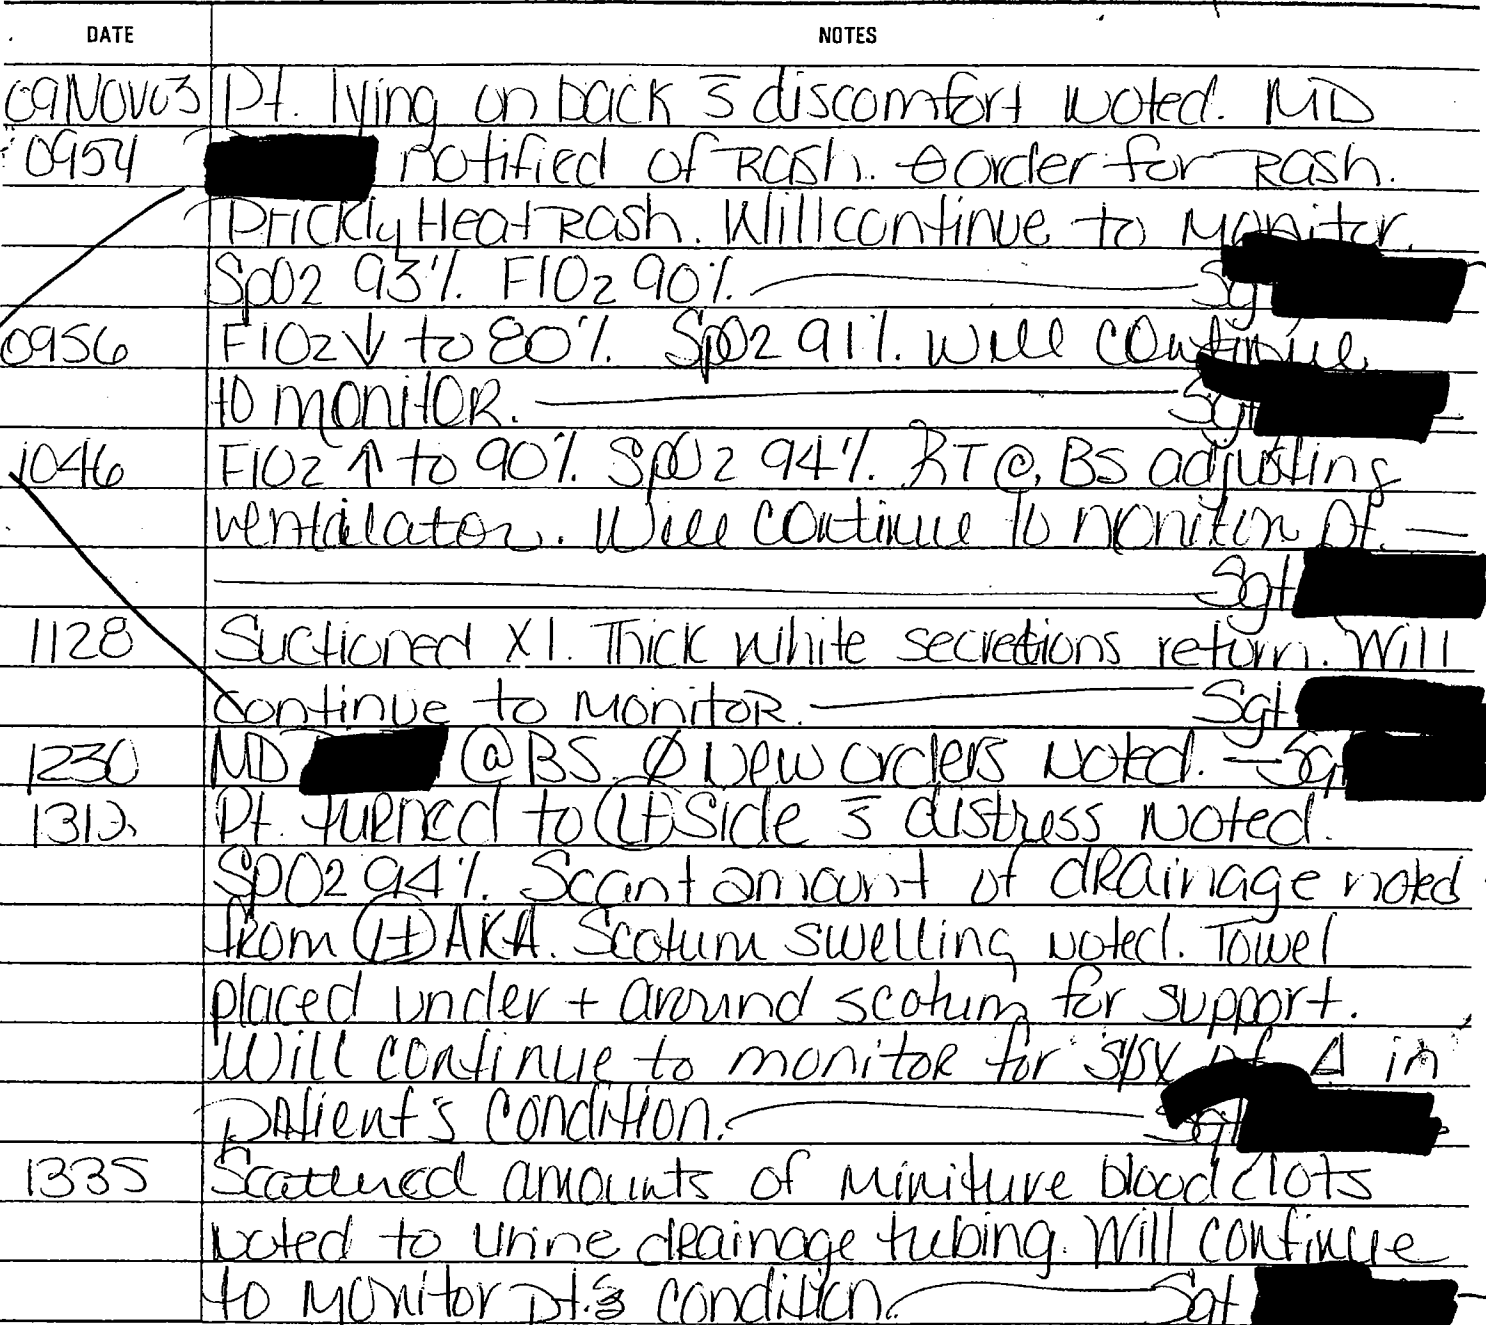 DATE NOTES
09NOV03 Pt. lying on back s̄ discomfort noted. MD
0954 notified of Rash. ⊖ order for Rash.
Prickly Heat Rash. Will continue to monitor.
SpO2 93%. FIO2 90%. Sgt
0956 FIO2 ↓ to 80%. SpO2 91%. Will continue
to monitor. Sgt
1046 FIO2 ↑ to 90%. SpO2 94%. RT @ BS adjusting
ventilator. Will continue to monitor pt.
Sgt
1128 Suctioned X1. Thick white secretions return. Will
continue to monitor. Sgt
1230 MD @ BS. Ø New orders noted. Sgt
1312 Pt. turned to (Lt) Side s̄ distress noted.
SpO2 94%. Scant amount of drainage noted
from (Lt) AKA. Scotum swelling noted. Towel
placed under + around scotum for support.
Will continue to monitor for s/sx of Δ in
patient's condition. Sgt
1335 Scattered amounts of miniture blood clots
noted to urine drainage tubing. Will continue
to monitor pt.'s condition. Sgt